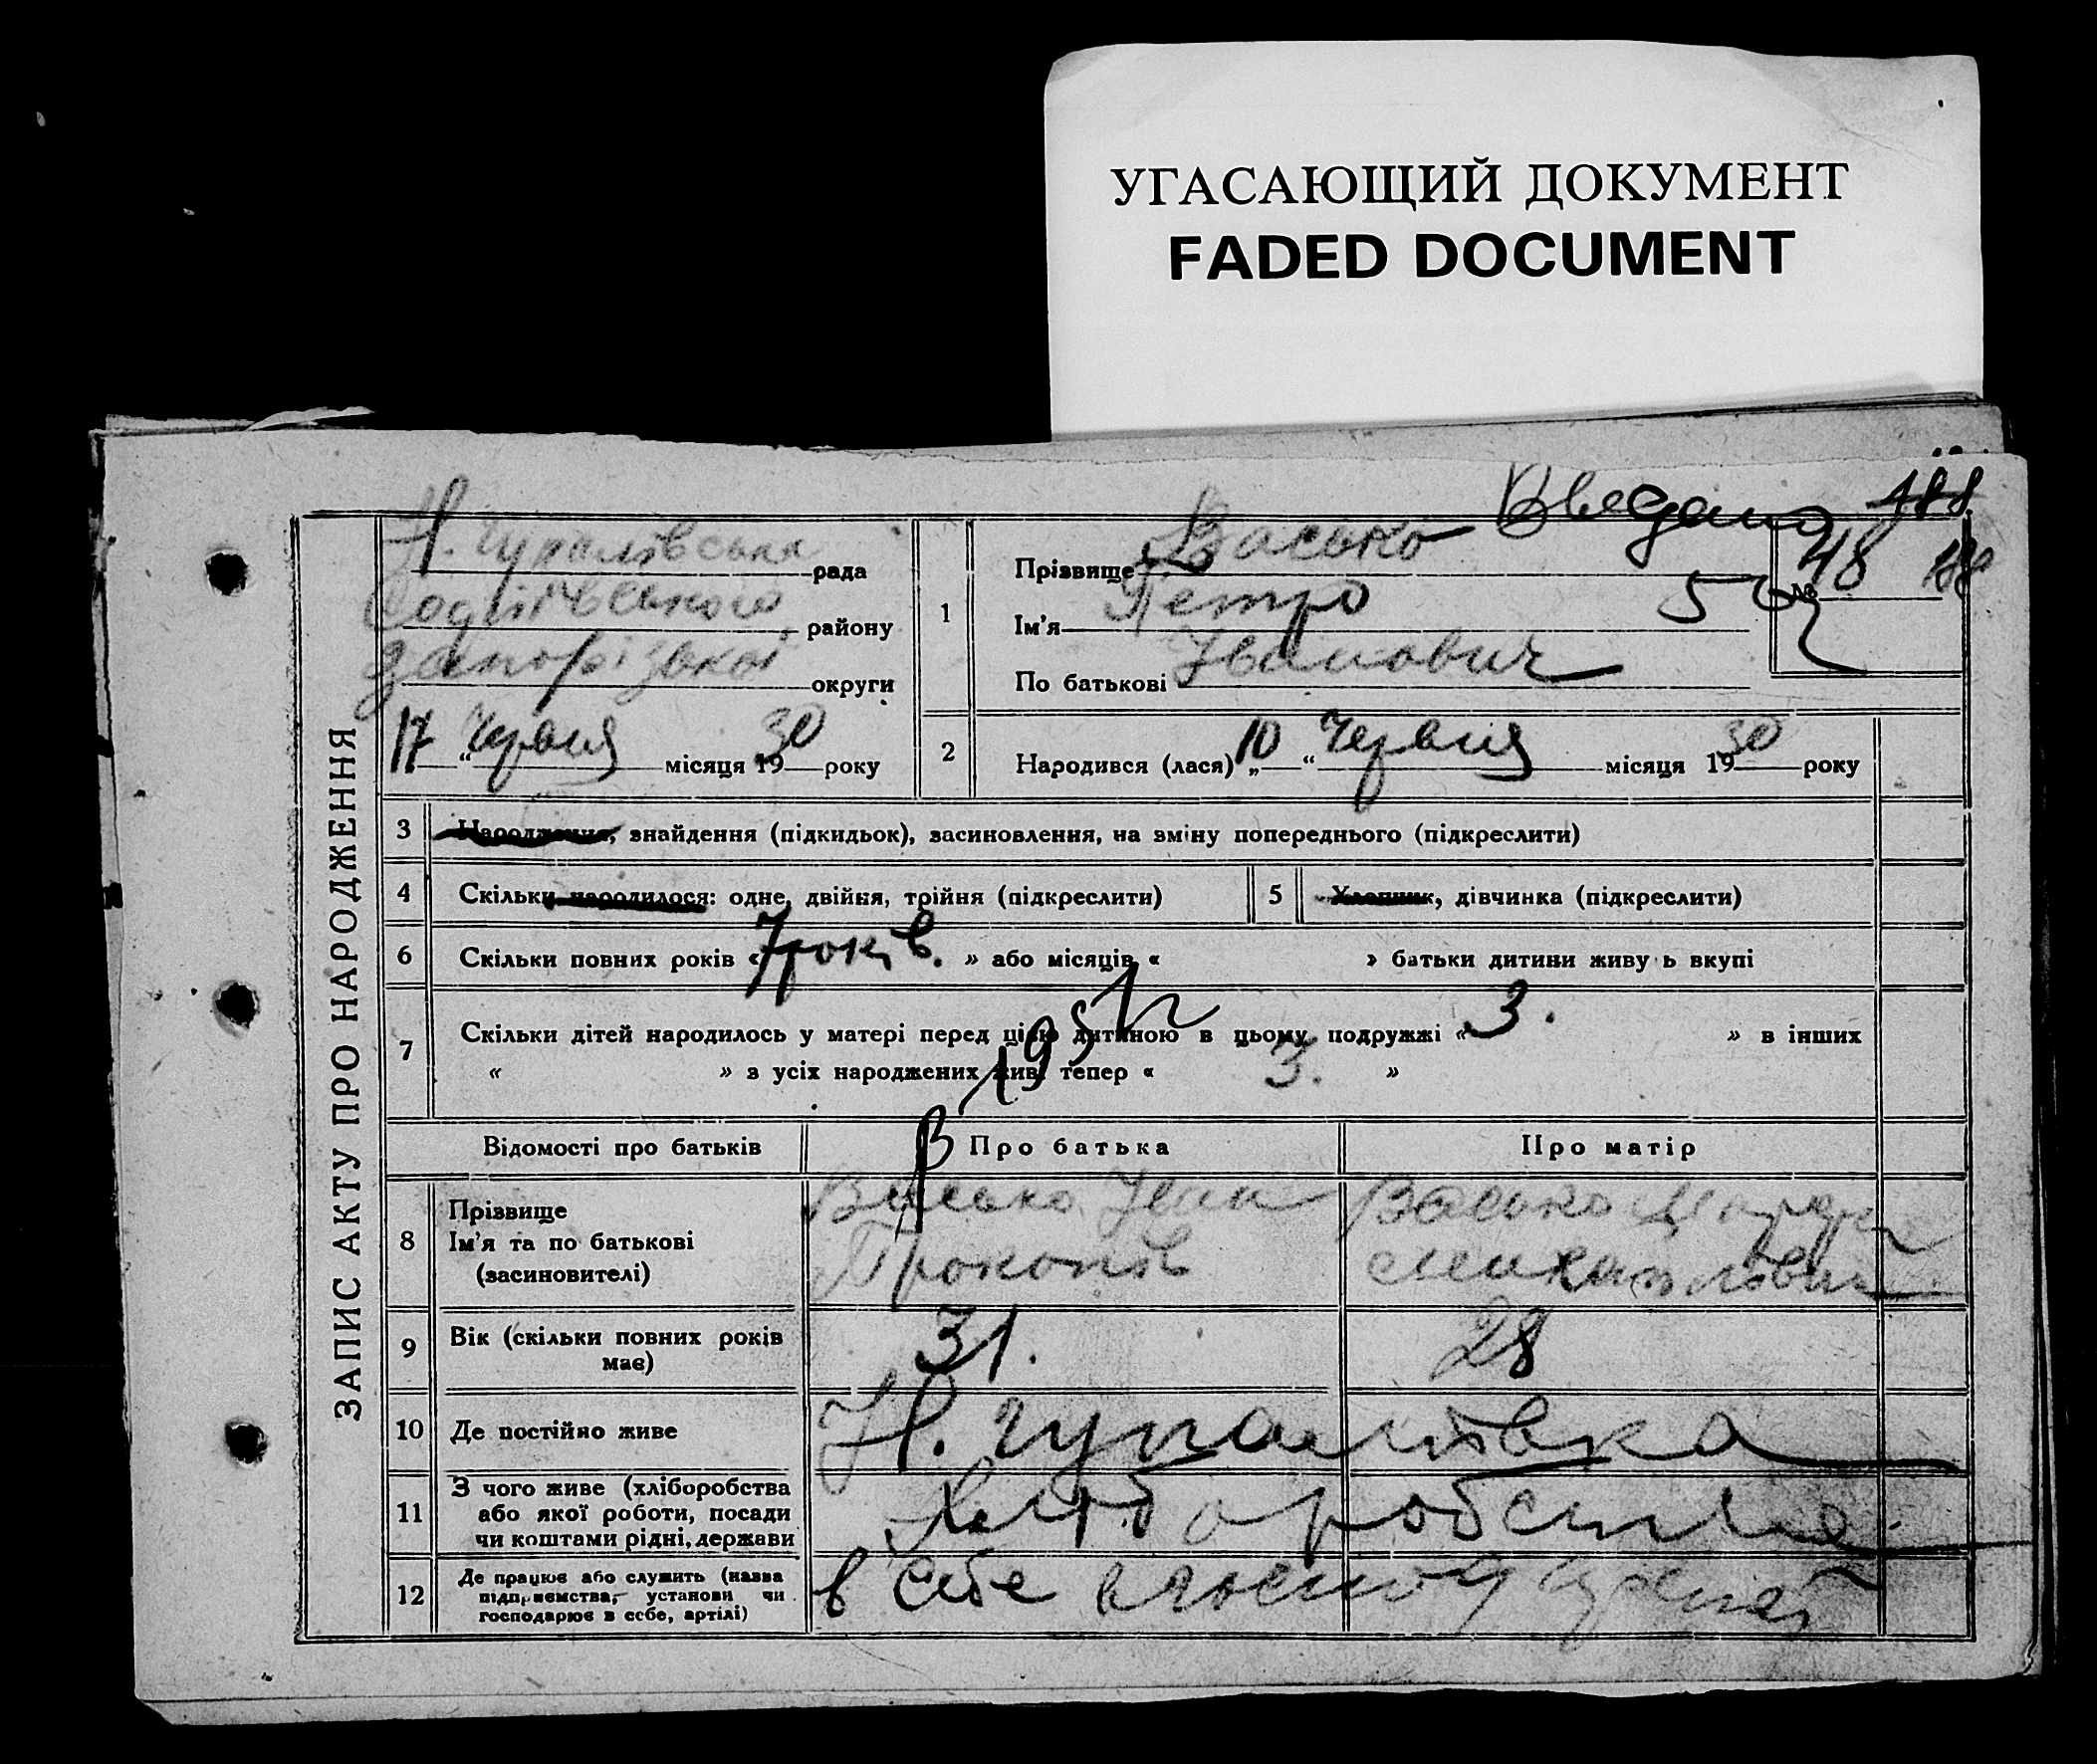 УГАСАЮЩИЙ ДОКУМЕНТ
FADED DOCUMENT
188
ЗАПИС АКТУ ПРО НАРОДЖЕННЯ
рада
району
Запорізької округи
17 “ Червня місяця 1930 року
1
Прізвище Васько
Ім'я Петро
По батькові Іванович
№ 48
2 Народився (лася) „10“ Червня місяця 1930 року
3 Народження, знайдення (підкидьок), засиновлення, на зміну попереднього (підкреслити)
4 Скільки народилося: одне, двійня, трійня (підкреслити)
5 Хлопчик, дівчинка (підкреслити)
6 Скільки повних років « 7 років. » або місяців « » батьки дитини живу ь вкупі
7 Скільки дітей народилось у матері перед цією дитиною в цьому подружжі « 3. » в інших
« » з усіх народжених живі тепер « 3. »
Відомості про батьків
Про батька
Про матір
8 Прізвище
Ім'я та по батькові
(засиновителі)
Васько Іван
Прокопів
Васько
9 Вік (скільки повних років
має)
31.
28
10 Де постійно живе
11 З чого живе (хліборобства
або якої роботи, посади
чи коштами рідні, держави
Хліборобства
12 Де працює або служить (назва
підприємства, установи чи
господарює в себе, артілі)
в себе